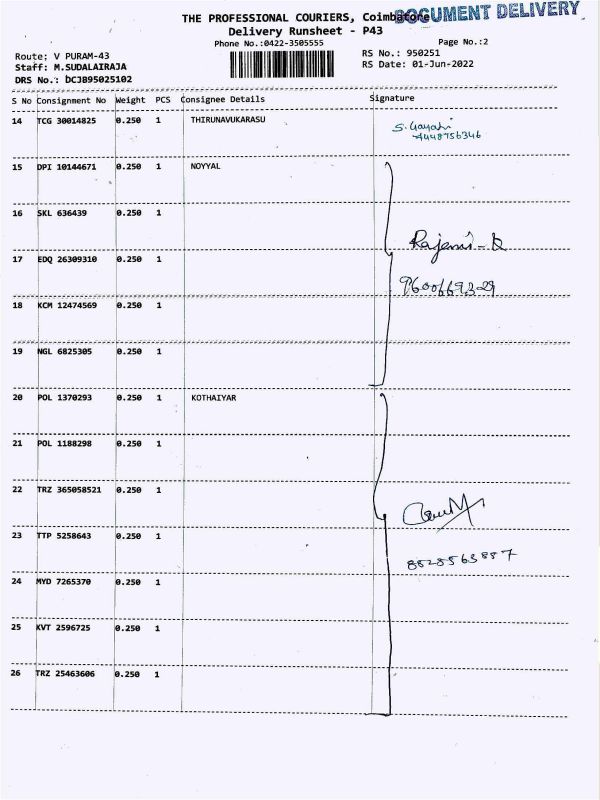 THE PROFESSIONAL COURIERS, Coimbatore
DOCUMENT DELIVERY
Delivery Runsheet - P43
Phone No.:0422-3505555
Page No.:2
Route: V PURAM-43
RS No.: 950251
Staff: M.SUDALAIRAJA
RS Date: 01-Jun-2022
DRS No.: DCJB95025102
S No Consignment No Weight PCS Consignee Details Signature
14 TCG 30014825 0.250 1 THIRUNAVUKARASU
S. Gayathri
4448756346
15 DPI 10144671 0.250 1 NOYYAL
16 SKL 636439 0.250 1
Rajeni - R
17 EDQ 26309310 0.250 1
9600669329
18 KCM 12474569 0.250 1
19 NGL 6825305 0.250 1
20 POL 1370293 0.250 1 KOTHAIYAR
21 POL 1188298 0.250 1
22 TRZ 365058521 0.250 1
23 TTP 5258643 0.250 1
8828563887
24 MYD 7265370 0.250 1
25 KVT 2596725 0.250 1
26 TRZ 25463606 0.250 1